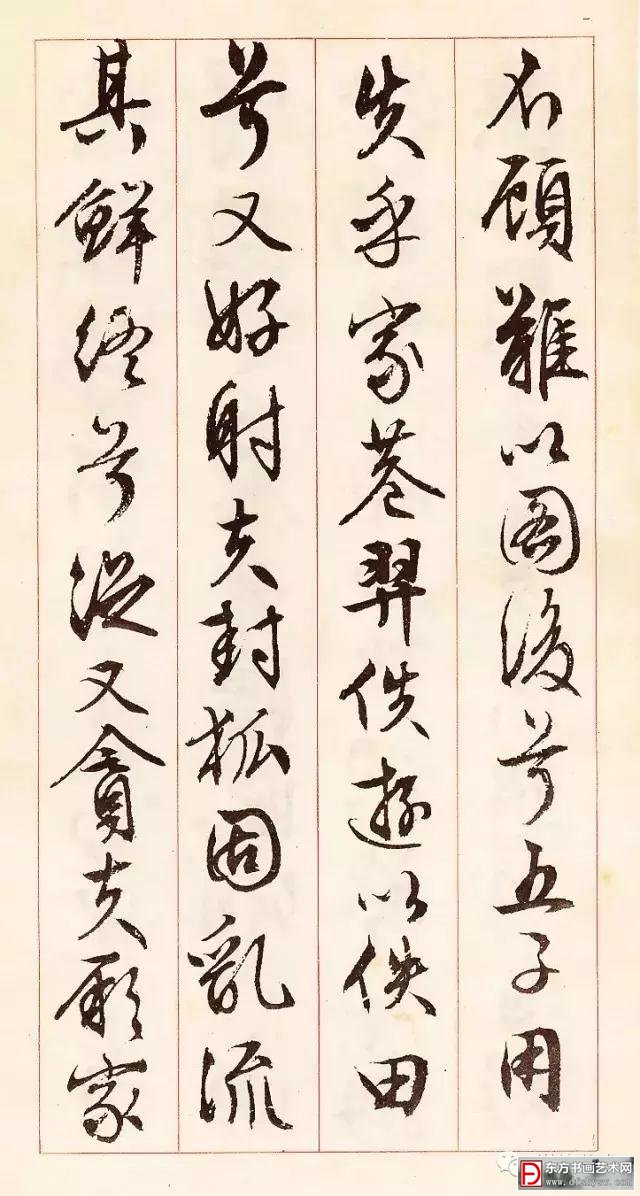 不顧難以圖後兮五子用
失乎家巷羿佚遊以佚田
兮又好射夫封狐固亂流
其鮮終兮浞又貪夫厥家
东方书画艺术网
www.dfshysw.com